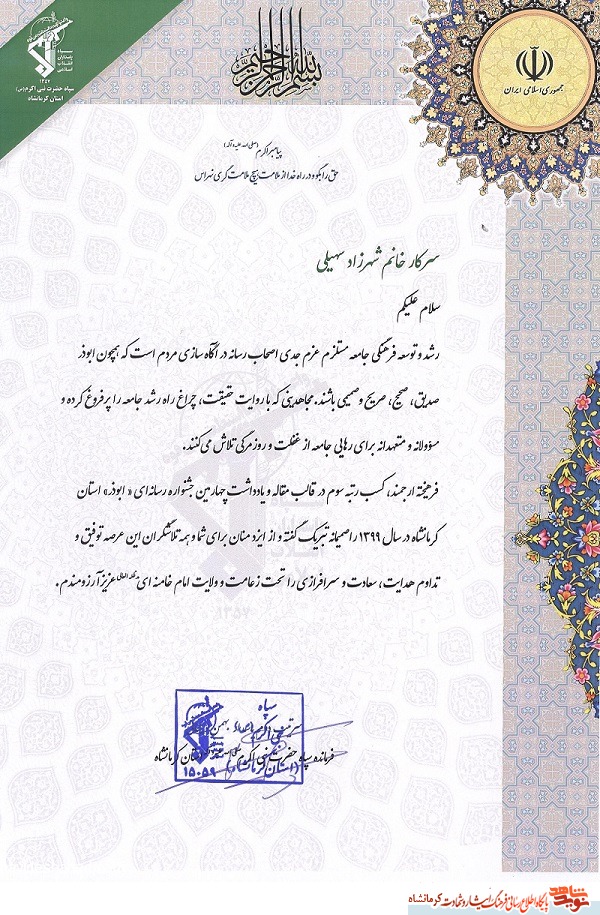 سپاه
پاسداران
انقلاب
اسلامی
۱۳۵۷
سپاه حضرت نبی اکرم(ص)
استان کرمانشاه
بسم الله الرحمن الرحیم
جمهوری اسلامی ایران
پیامبر اکرم (صلی الله علیه و آله)
حق را بگو و در راه خدا از ملامت هیچ ملامت گری نهراس
سرکار خانم شهرزاد سهیلی
سلام علیکم
رشد و توسعه فرهنگی جامعه مستلزم عزم جدی اصحاب رسانه در آگاه سازی مردم است که همچون ابوذر
صدیق، صحیح، صریح و صمیمی باشند. مجاهدینی که با روایت حقیقت، چراغ راه رشد جامعه را پر فروغ کرده و
مسؤولانه و متعهدانه برای رهایی جامعه از غفلت و روزمرگی تلاش می‌کنند.
فرهیخته ارجمند، کسب رتبه سوم در قالب مقاله و یادداشت چهارمین جشنواره رسانه‌ای « ابوذر » استان
کرمانشاه در سال ۱۳۹۹ را صمیمانه تبریک گفته و از ایزد منان برای شما و همه تلاشگران این عرصه توفیق و
تداوم هدایت، سعادت و سرافرازی را تحت زعامت و ولایت امام خامنه ای مدظله العالی عزیز آرزومندم.
سپاه
سرتیپ بهمن
فرمانده سپاه حضرت نبی اکرم استان کرمانشاه
(استان کرمانشاه)
۱۵۰۵۹
نوید شاهد
پایگاه اطلاع رسانی فرهنگ ایثار و شهادت کرمانشاه